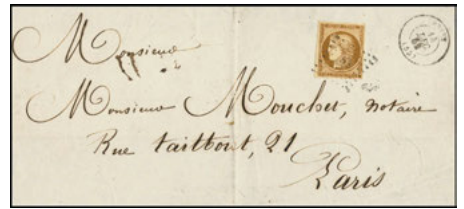 Monsieur
Monsieur Mouchet, notaire
Rue taitbout, 21
Paris